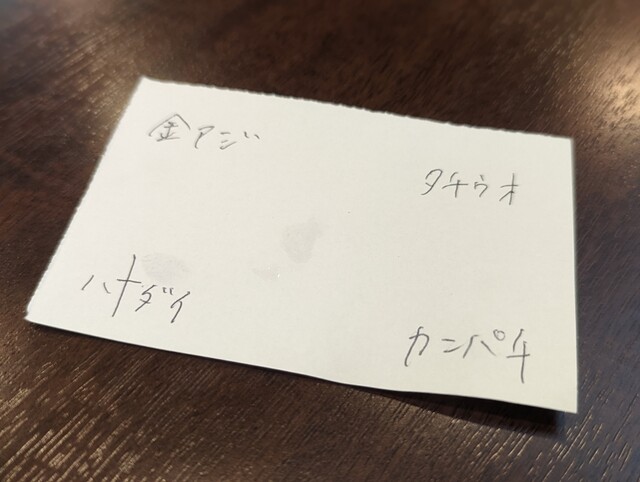 金アジ
タチウオ
ハナダイ
カンパチ